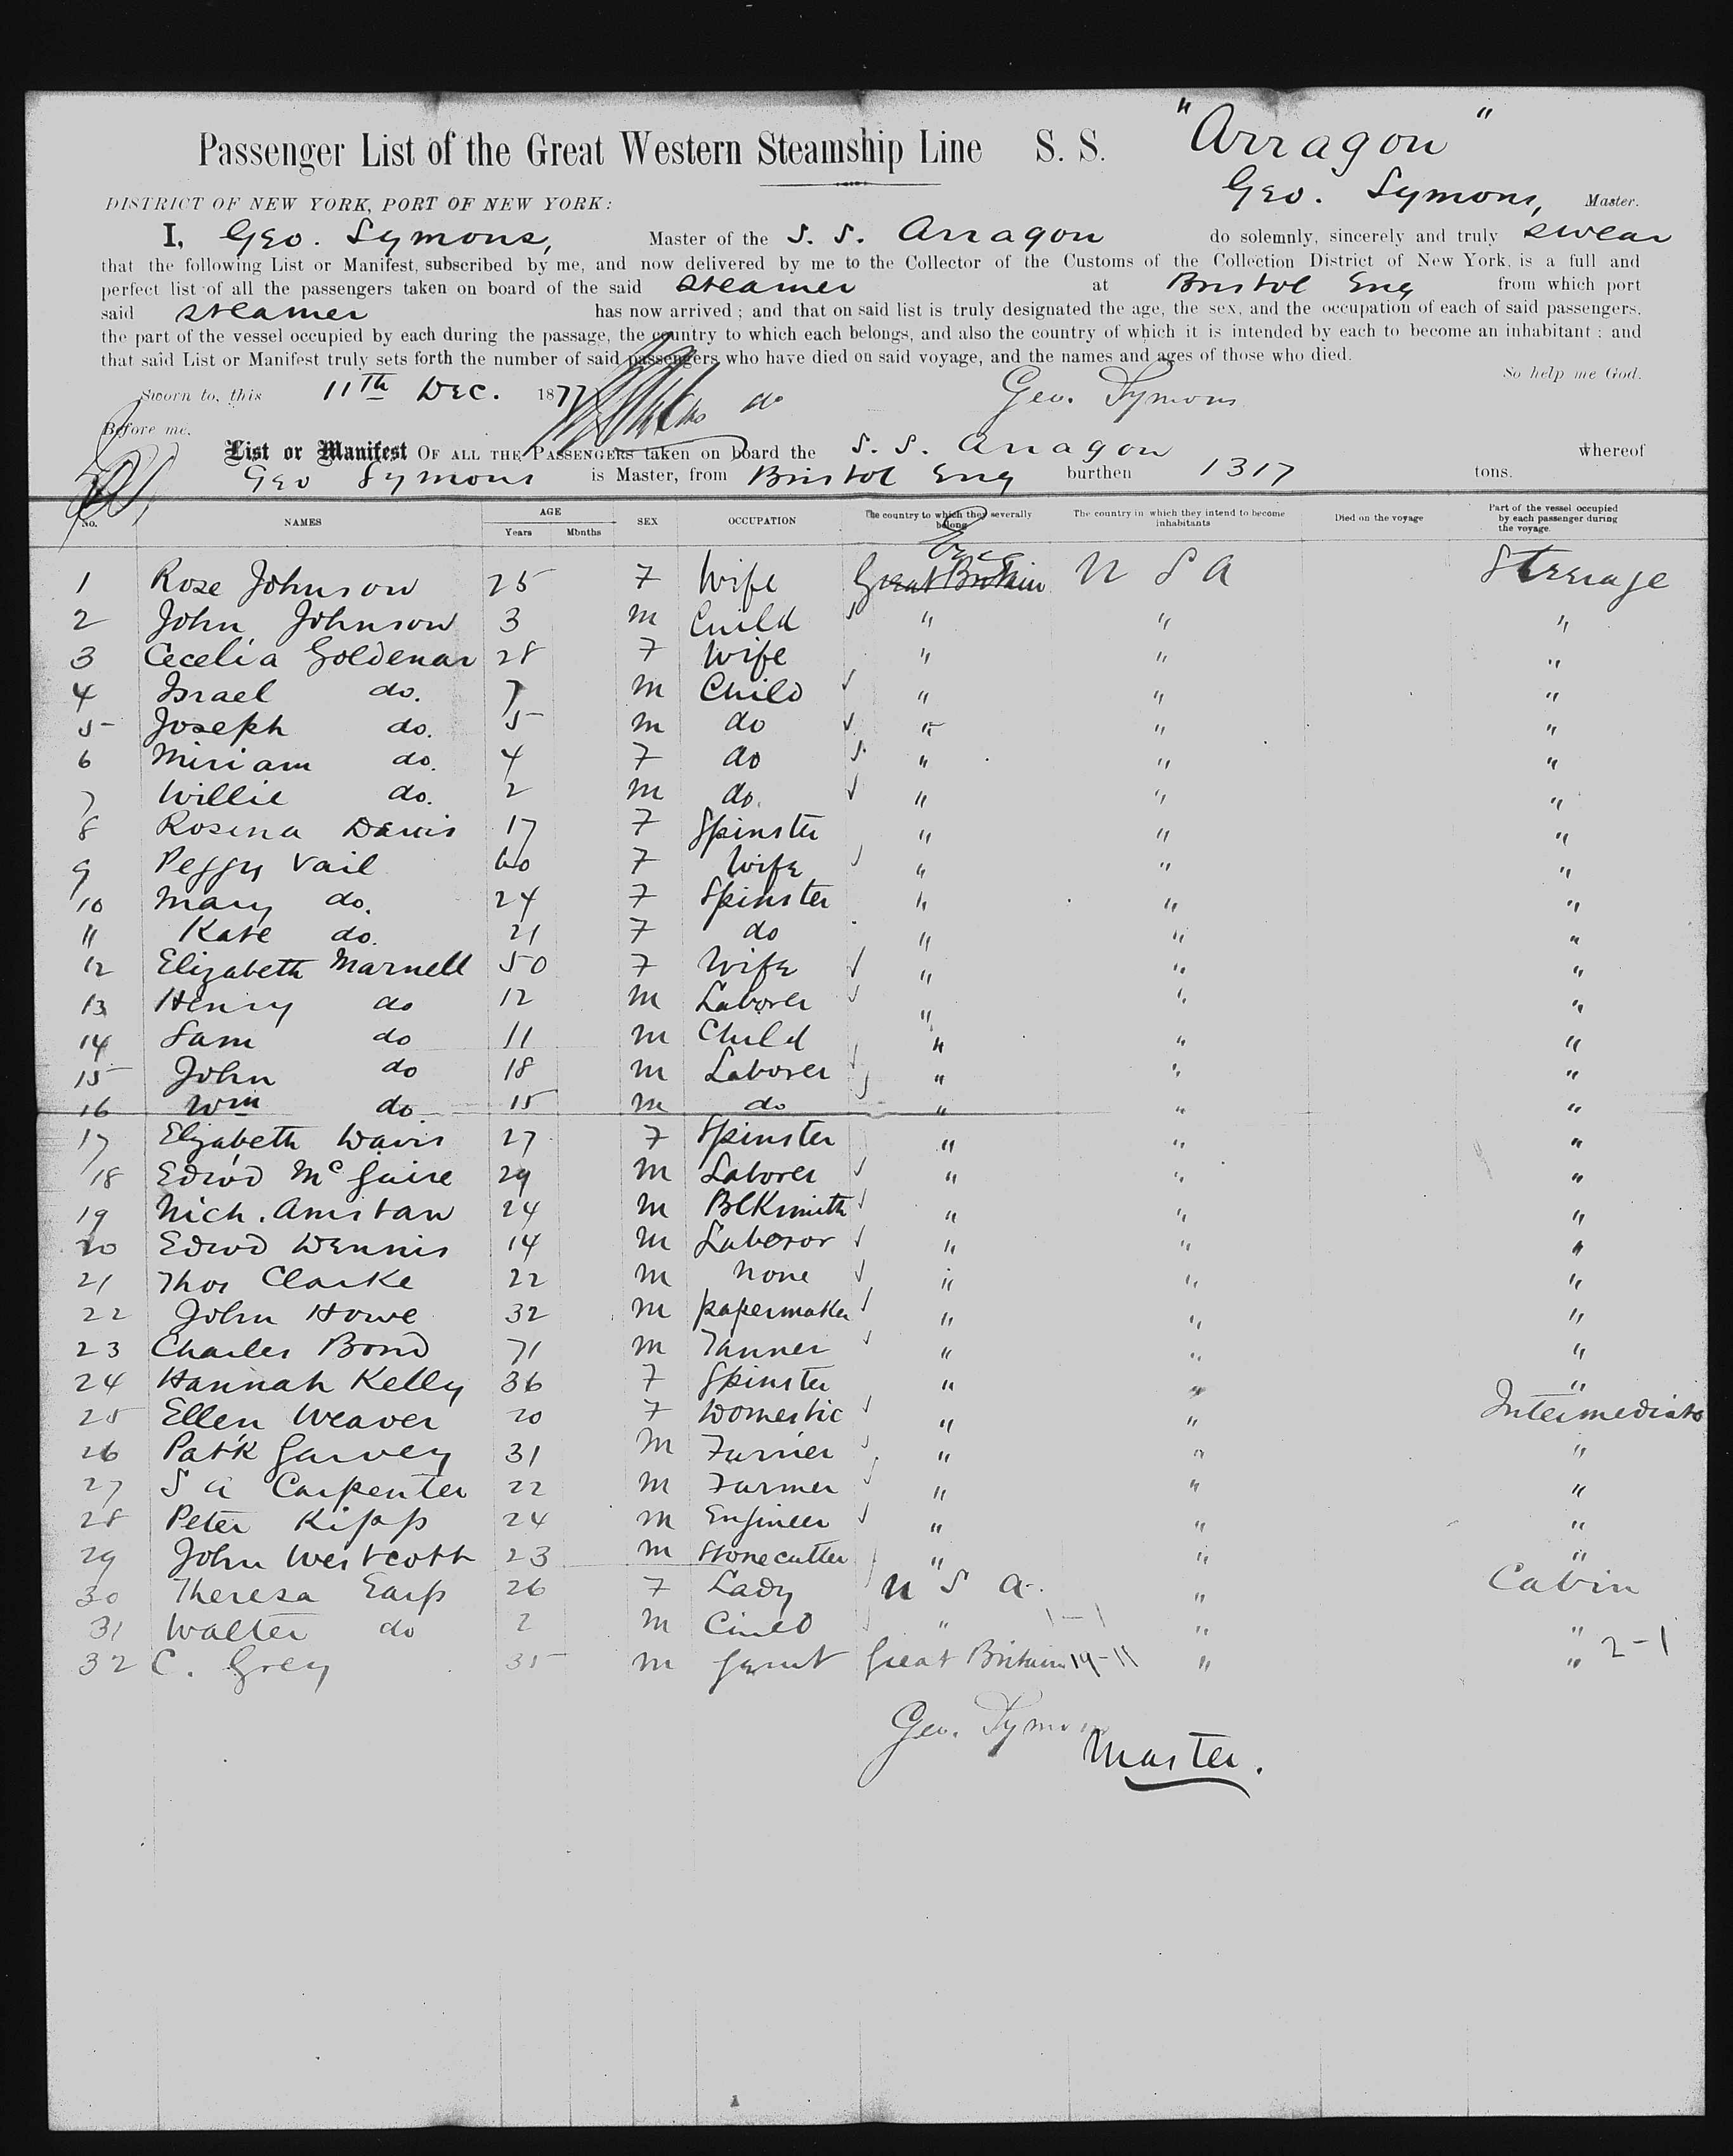 Passenger List of the Great Western Steamship Line S. S. "Arragon"
Geo. Symons, Master.
DISTRICT OF NEW YORK, PORT OF NEW YORK:
I, Geo. Symons, Master of the S. S. Arragon do solemnly, sincerely and truly swear
that the following List or Manifest, subscribed by me, and now delivered by me to the Collector of the Customs of the Collection District of New York, is a full and
perfect list of all the passengers taken on board of the said steamer at Bristol Eng from which port
said steamer has now arrived; and that on said list is truly designated the age, the sex, and the occupation of each of said passengers,
the part of the vessel occupied by each during the passage, the country to which each belongs, and also the country of which it is intended by each to become an inhabitant: and
that said List or Manifest truly sets forth the number of said passengers who have died on said voyage, and the names and ages of those who died.
So help me God.
Sworn to, this 11th Dec. 1877 Geo. Symons
Before me,
List or Manifest OF ALL THE PASSENGERS taken on board the S. S. Arragon whereof
Geo Symons is Master, from Bristol Eng burthen 1317 tons.
No. NAMES AGE Years Months SEX OCCUPATION The country to which they severally belong The country in which they intend to become inhabitants Died on the voyage Part of the vessel occupied by each passenger during the voyage.
1 Rose Johnson 25 F Wife Great Britain U S A Steerage
2 John Johnson 3 M Child " " "
3 Cecelia Goldenar 28 F Wife " " "
4 Israel do. 7 M Child " " "
5 Joseph do. 5 M do " " "
6 Miriam do. 4 F do " " "
7 Willie do. 2 M do. " " "
8 Rosina Davis 17 F Spinster " " "
9 Peggy Vail 60 F Wife " " "
10 Mary do. 24 F Spinster " " "
11 Kate do. 21 F do " " "
12 Elizabeth Marnell 50 F Wife " " "
13 Henry do 12 M Laborer " " "
14 Sam do 11 M Child " " "
15 John do 18 M Laborer " " "
16 Wm do 15 M do " " "
17 Elizabeth Davis 27 F Spinster " " "
18 Edwd McGuire 29 M Laborer " " "
19 Nich. Amistaw 24 M BlKsmith " " "
20 Edwd Dennis 14 M Laboror " " "
21 Thos Clarke 22 M none " " "
22 John Howe 32 M papermaker " " "
23 Charles Bond 71 M Tanner " " "
24 Hannah Kelly 36 F Spinster " " "
25 Ellen Weaver 20 F Domestic " " Intermediate
26 Patk Garvey 31 M Farrier " " "
27 S A Carpenter 22 M Farmer " " "
28 Peter Kipps 24 M Engineer " " "
29 John Westcott 23 M Stonecutter " " "
30 Theresa Earp 26 F Lady U S A. " Cabin
31 Walter do 2 M Child " 1-1 " "
32 C. Grey 35 M Gent Great Britain 19-11 " " 2-1
Geo. Symons
Master.